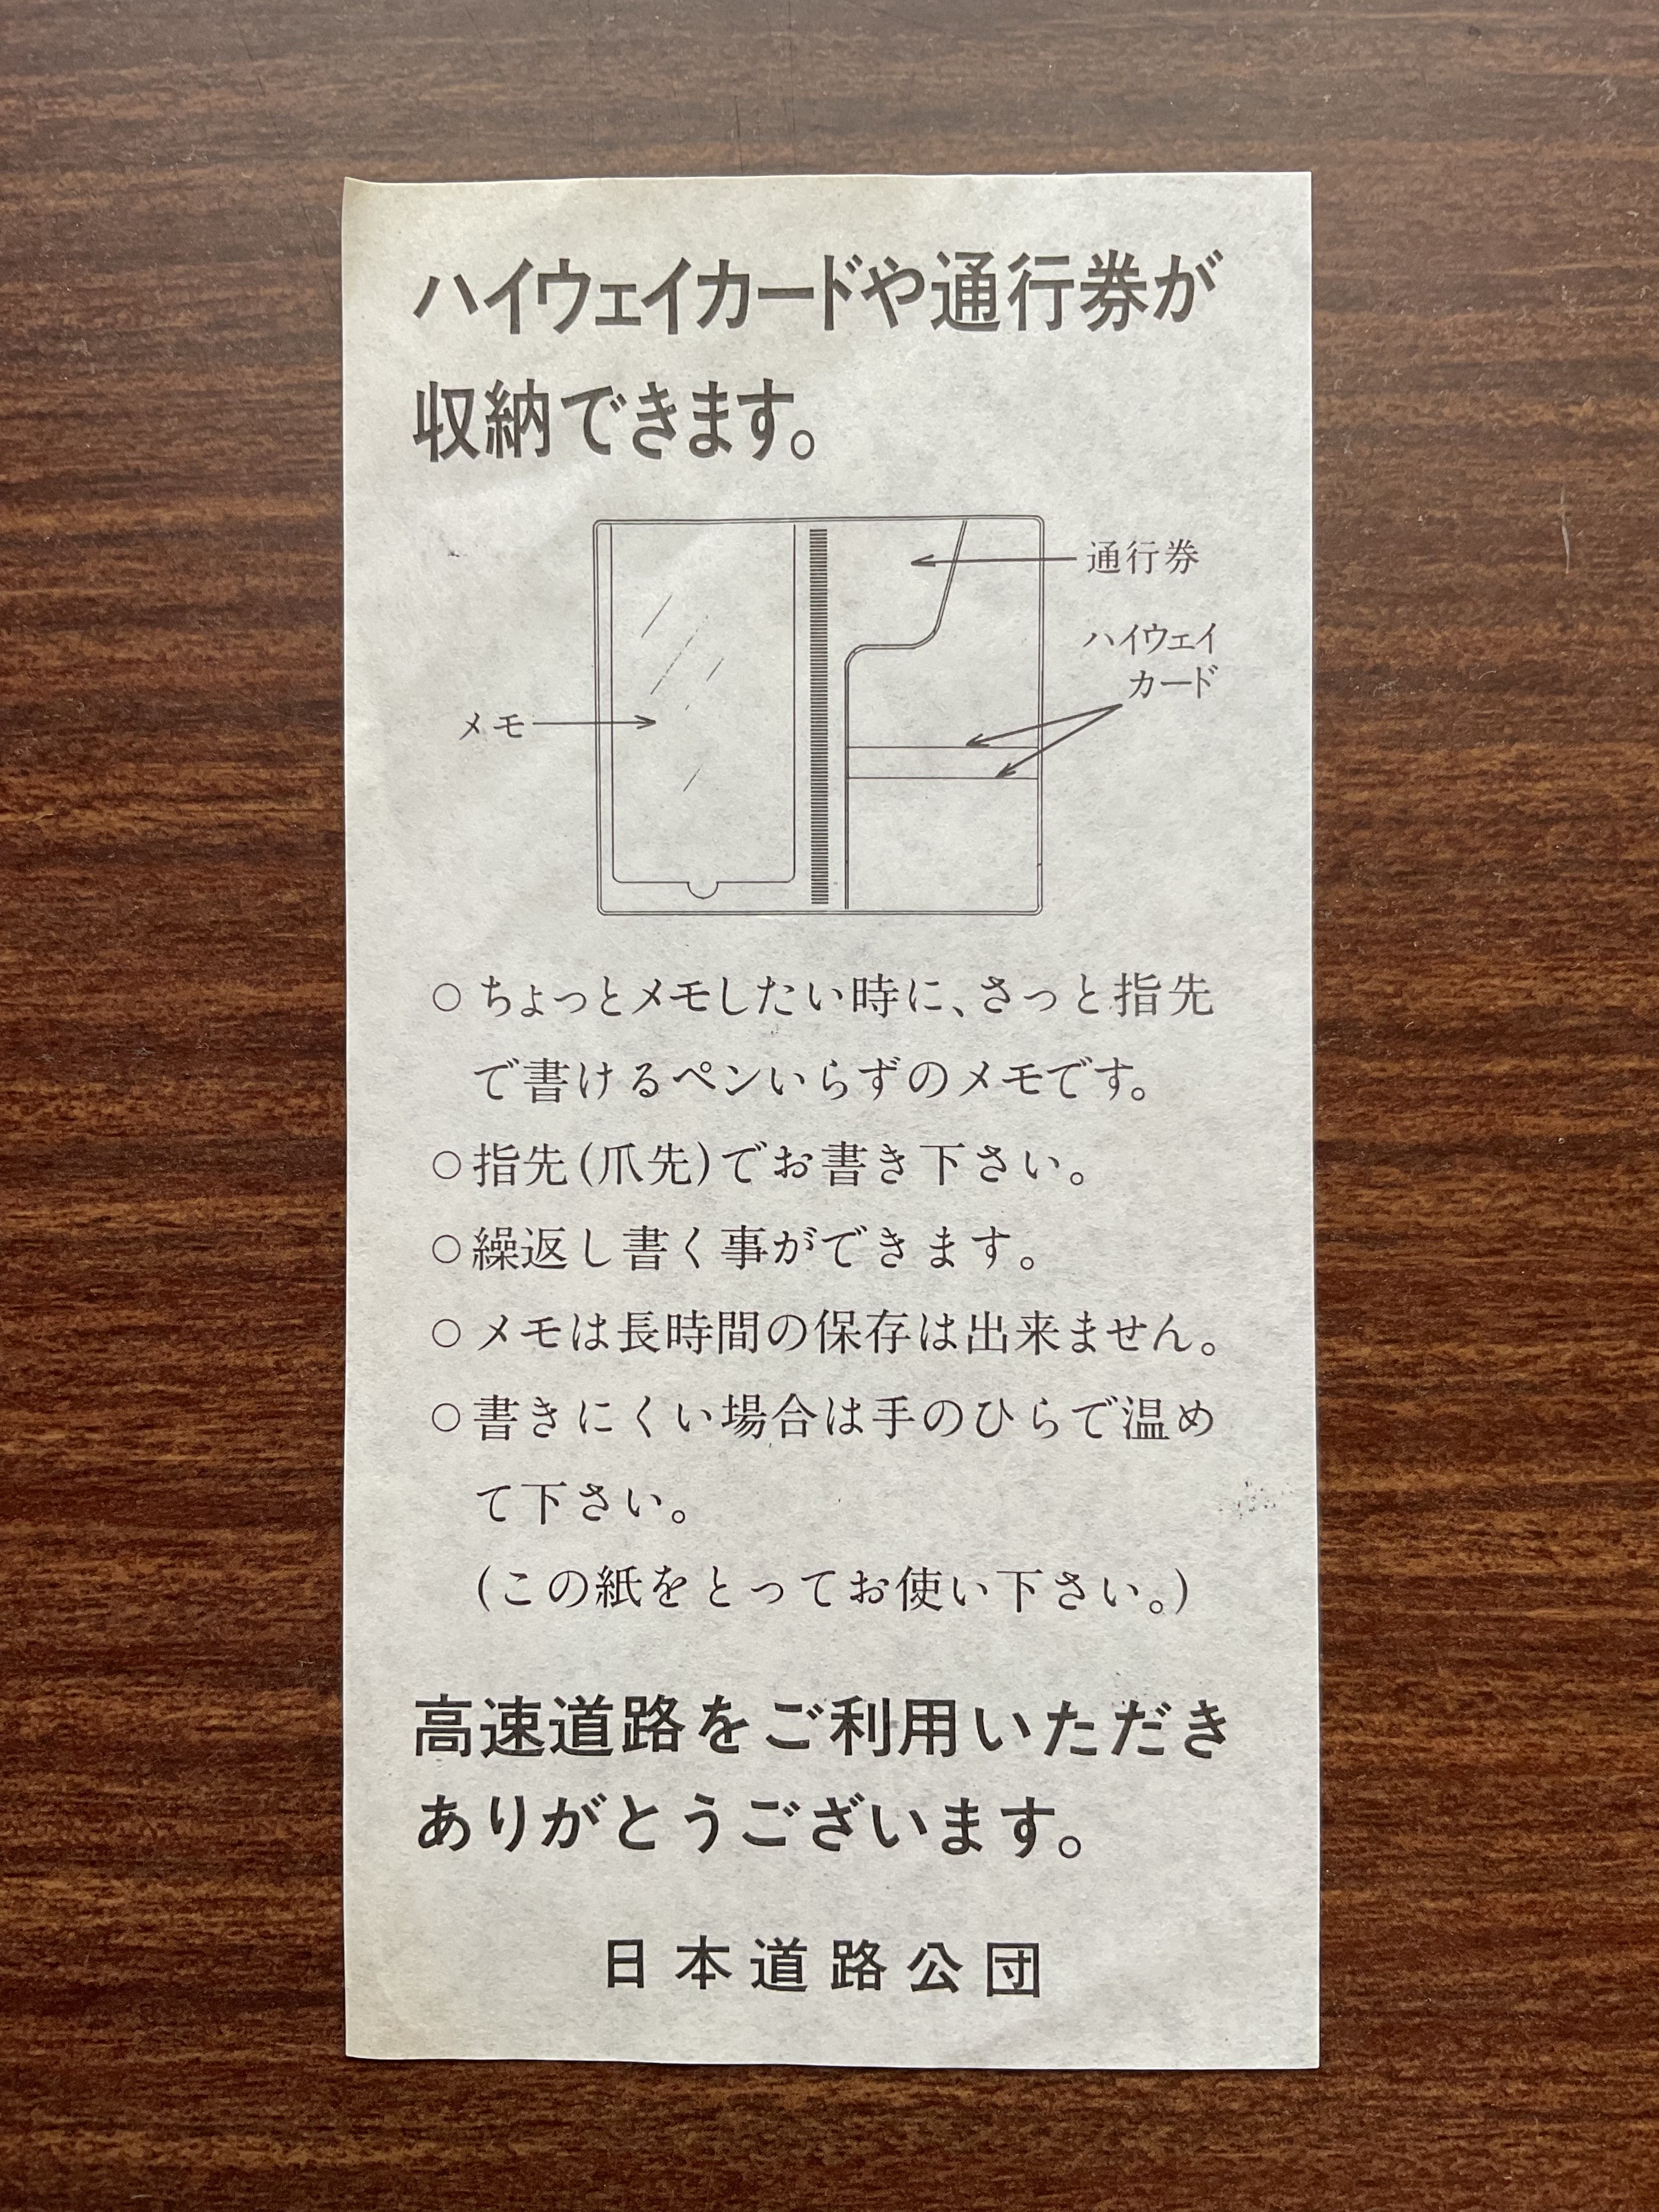 ハイウェイカードや通行券が
収納できます。
通行券
ハイウェイ
カード
メモ
○ちょっとメモしたい時に、さっと指先
で書けるペンいらずのメモです。
○指先(爪先)でお書き下さい。
○繰返し書く事ができます。
○メモは長時間の保存は出来ません。
○書きにくい場合は手のひらで温め
て下さい。
(この紙をとってお使い下さい。)
高速道路をご利用いただき
ありがとうございます。
日本道路公団